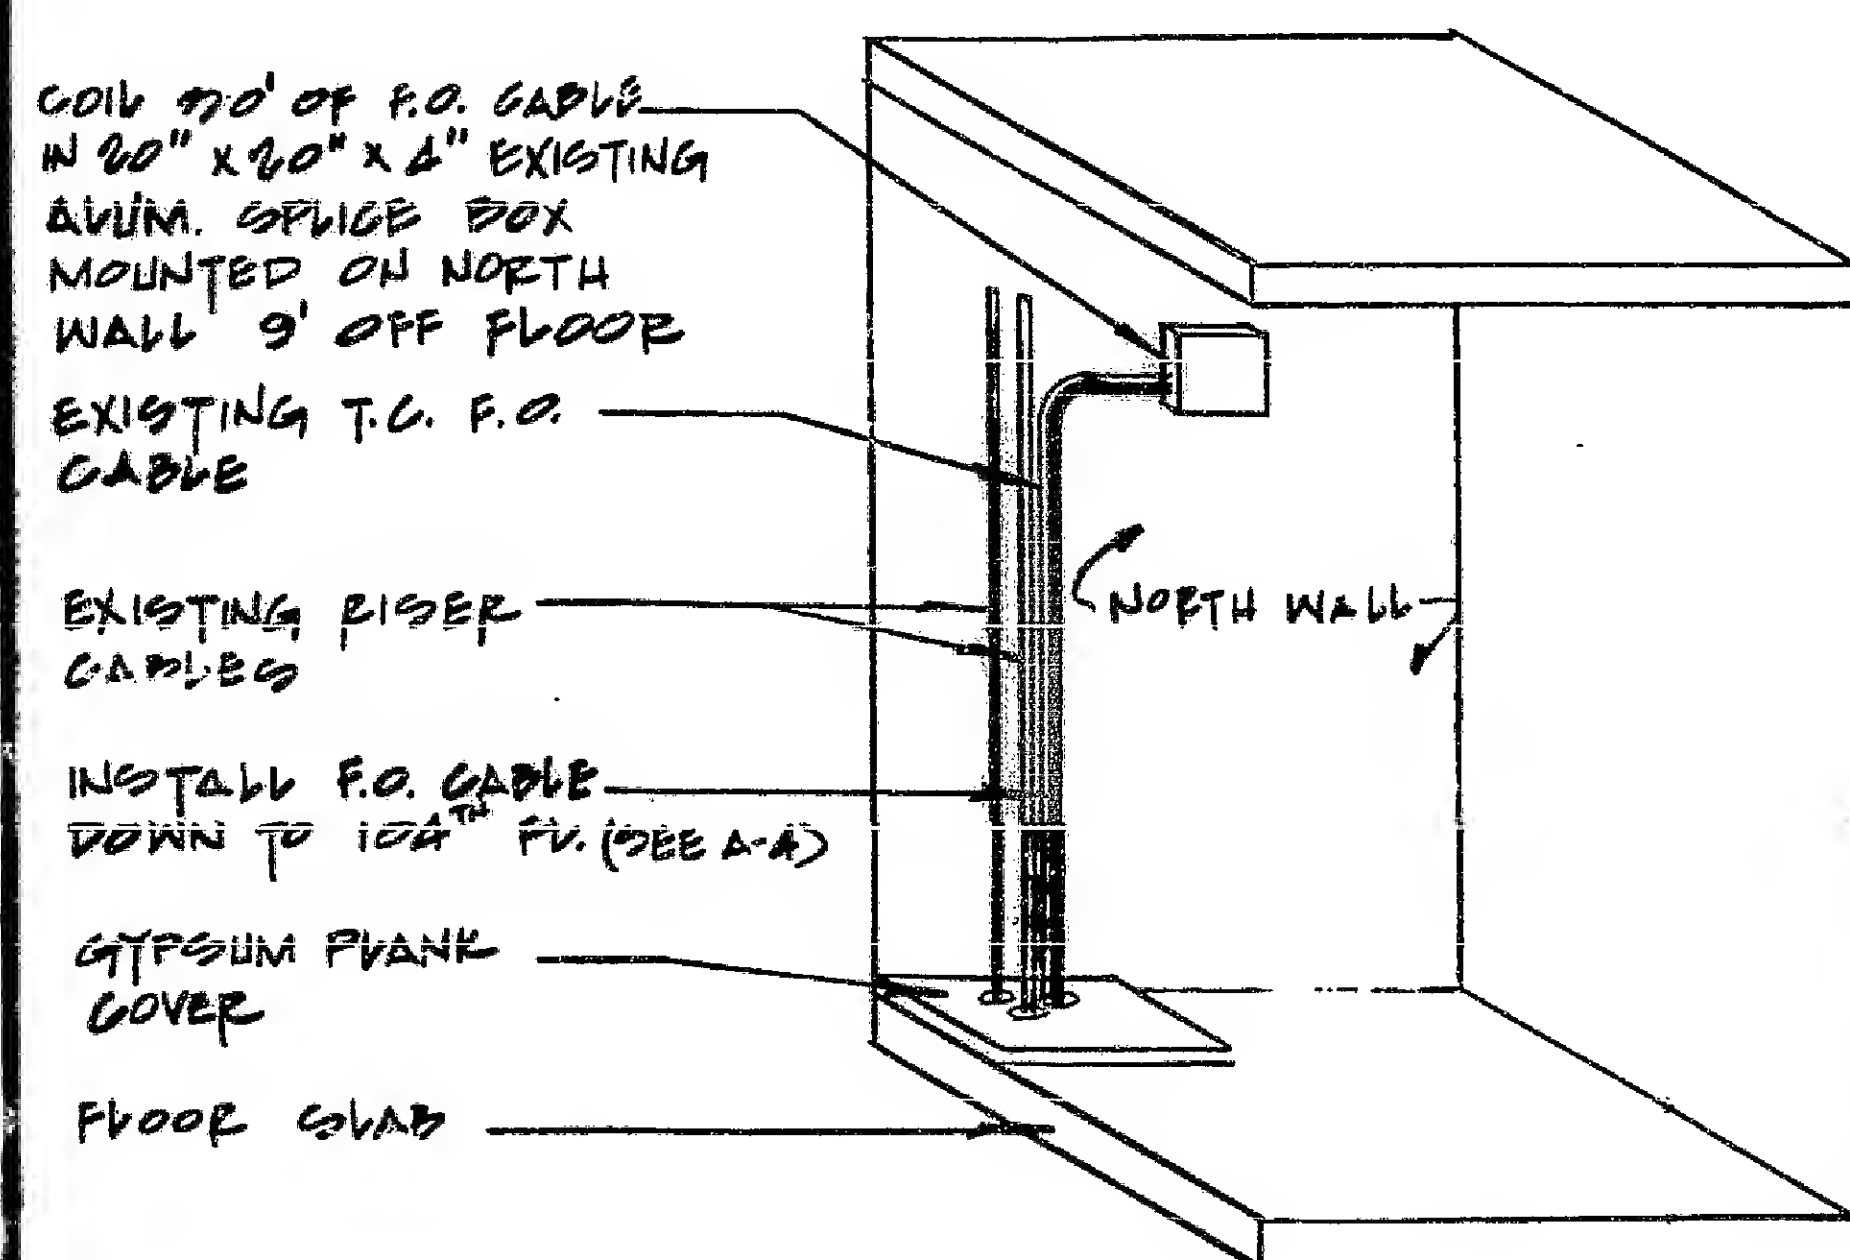 COIL 30' OF F.O. CABLE
IN 20" X 20" X 4" EXISTING
ALUM. SPLICE BOX
MOUNTED ON NORTH
WALL 9' OFF FLOOR
EXISTING T.C. F.O.
CABLE
EXISTING RISER
CABLES
NORTH WALL
INSTALL F.O. CABLE
DOWN TO 104TH FL. (SEE A-A)
GYPSUM PLANK
COVER
FLOOR SLAB